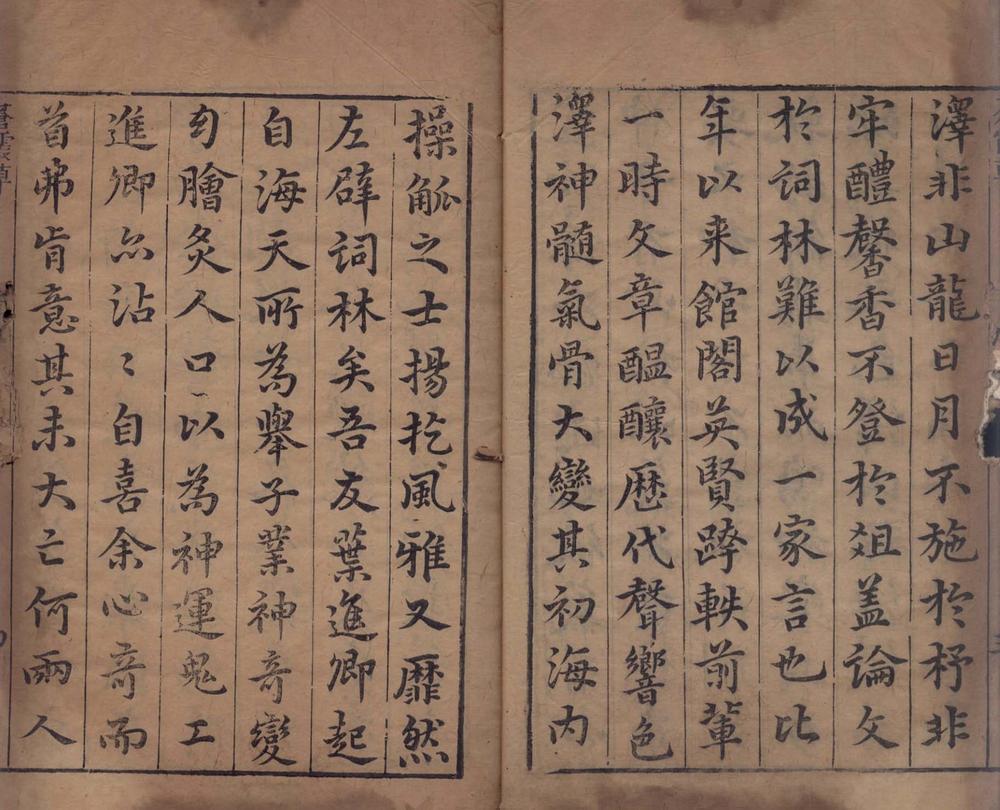 澤非山龍日月不施於杼非
牢醴馨香不登於俎盖論文
於詞林難以成一家言也比
年以来館閣英賢踔軼前軰
一時文章醖釀歷代聲響色
澤神髄氣骨大變其初海内
操觚之士揚扢風雅又靡然
左辟詞林矣吾友葉進卿起
自海天所為舉子業神竒變
幻膾炙人口以為神運鬼工
進卿亦沾〻自喜余心竒而
首弗肯意其未大亡何兩人